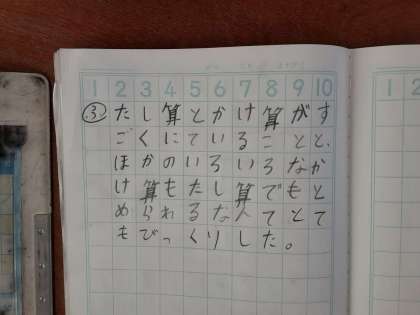 1 2 3 4 5 6 7 8 9 10
③ たし算とかけ算がす
ごくにていることと、
ほかのいろいろなか
け算もたし算でもと
められるなんてとて
もびっくりした。
1 2